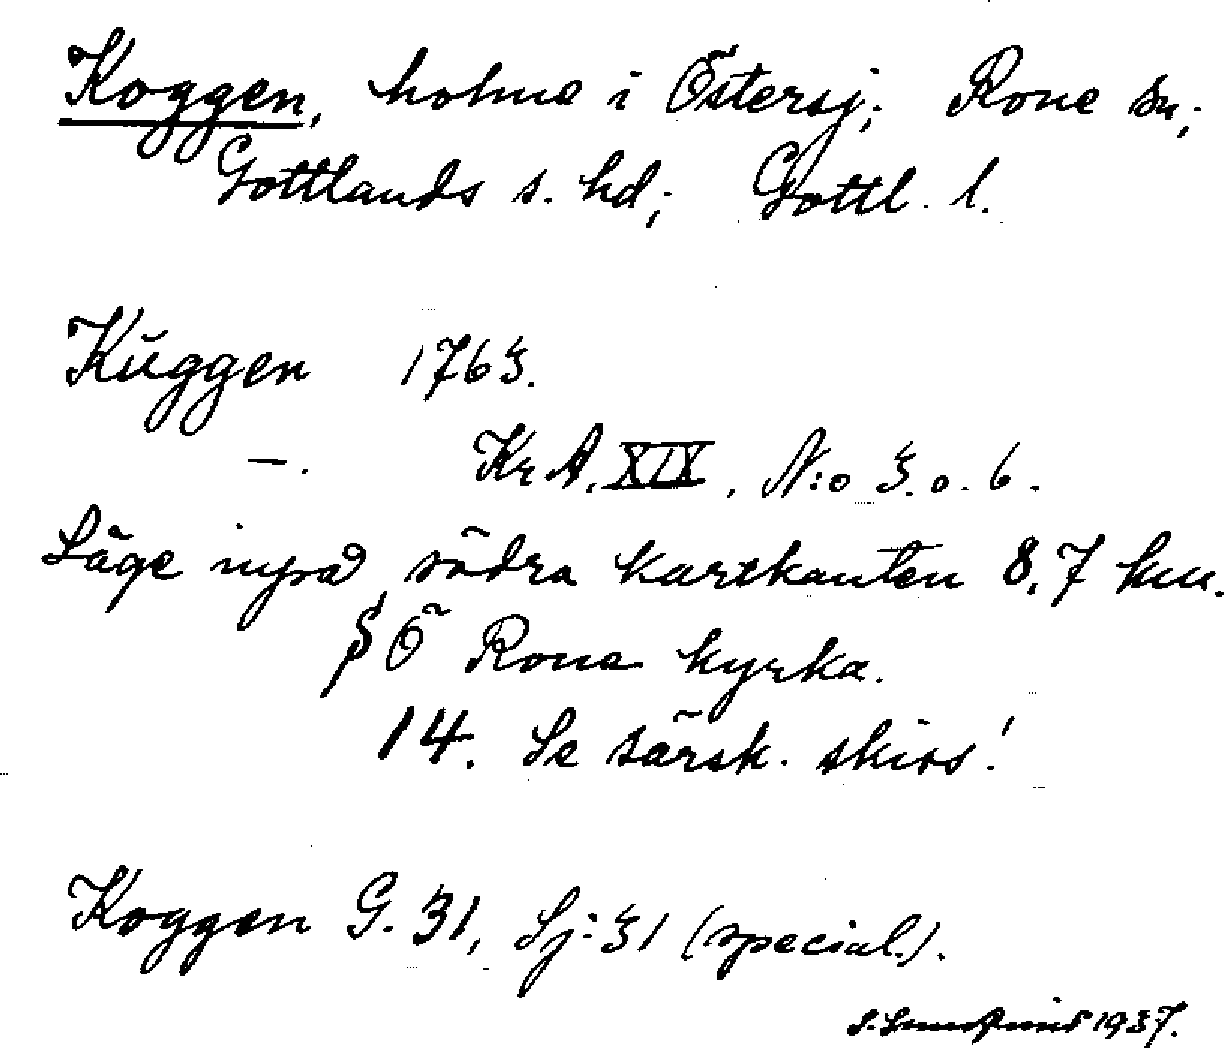 Koggen, holme i Östersj; Rone sn;
Gottlands s. hd; Gottl. l.
Kŭggen 1763.
—. Kr A. XIX, N:o 3. o. 6.
Läge invid södra kartkanten 8,7 km.
S Ö Rone kyrka.
14. Se särsk. skiss!
Koggen G. 31, Sj: 31 (special.).
1937.